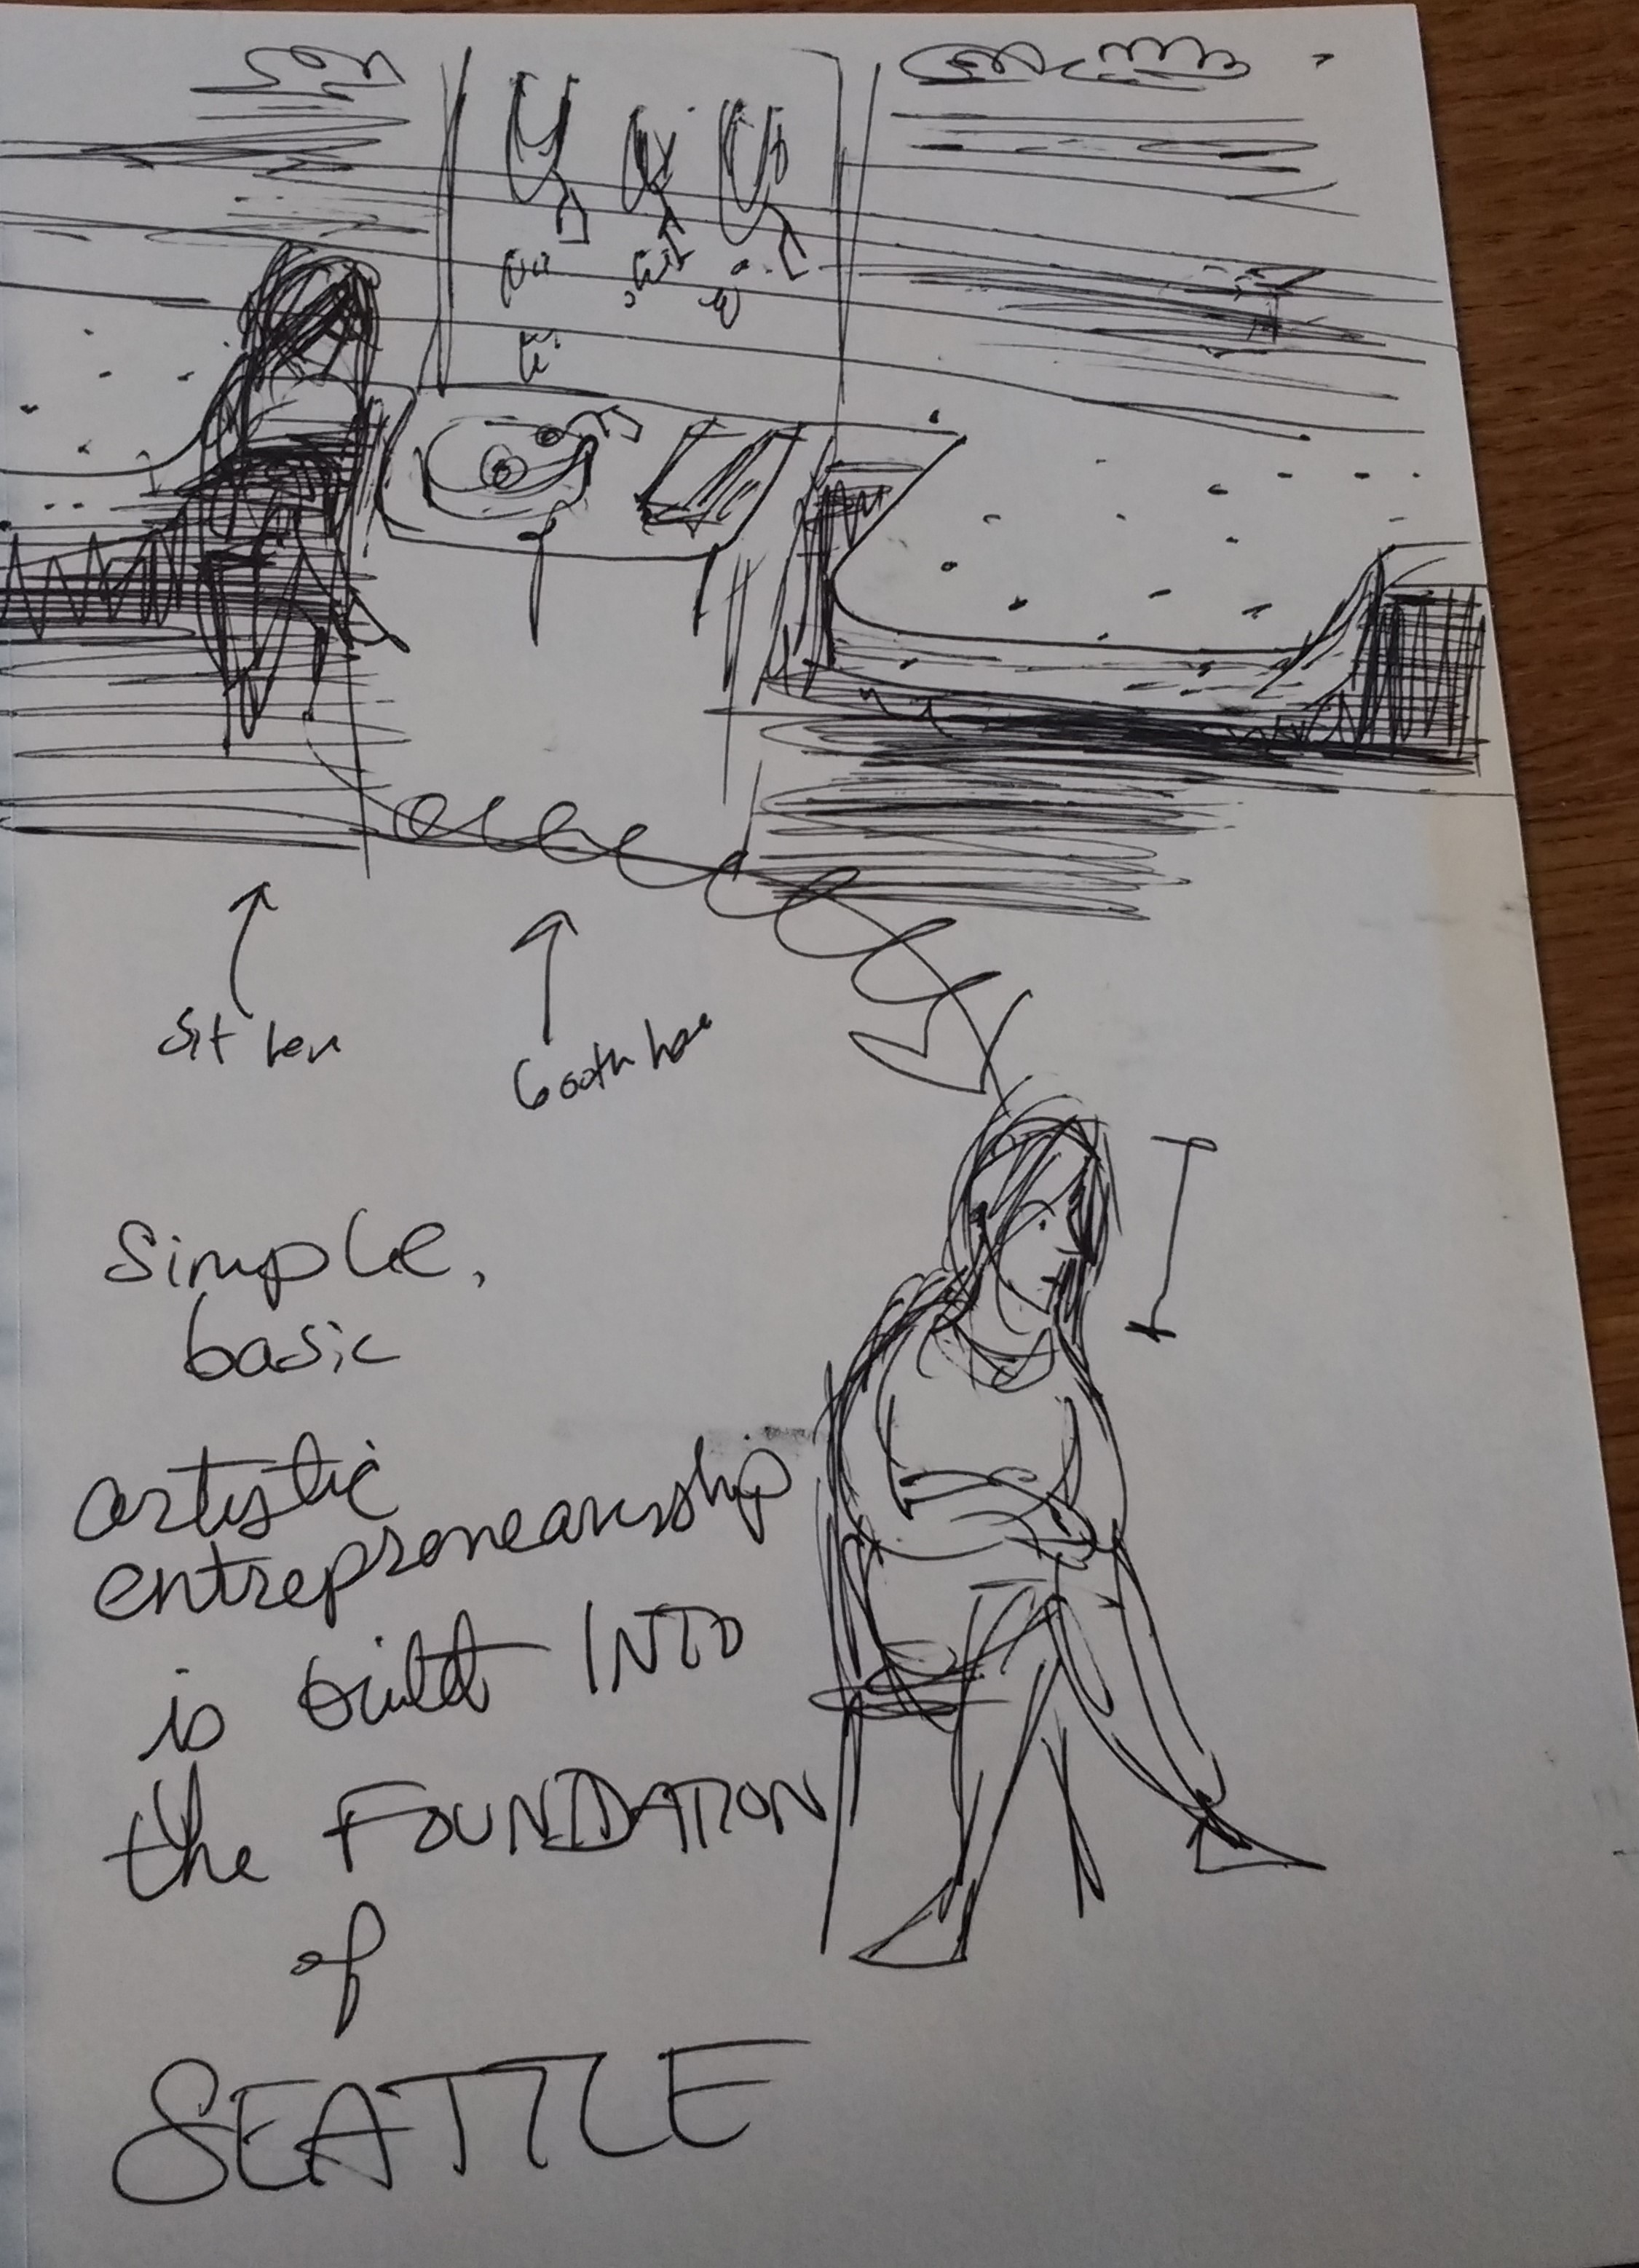 Sit here
booth here
simple,
basic
artistic
entrepreneaurship
is built INTO
the FOUNDATION
of
SEATTLE